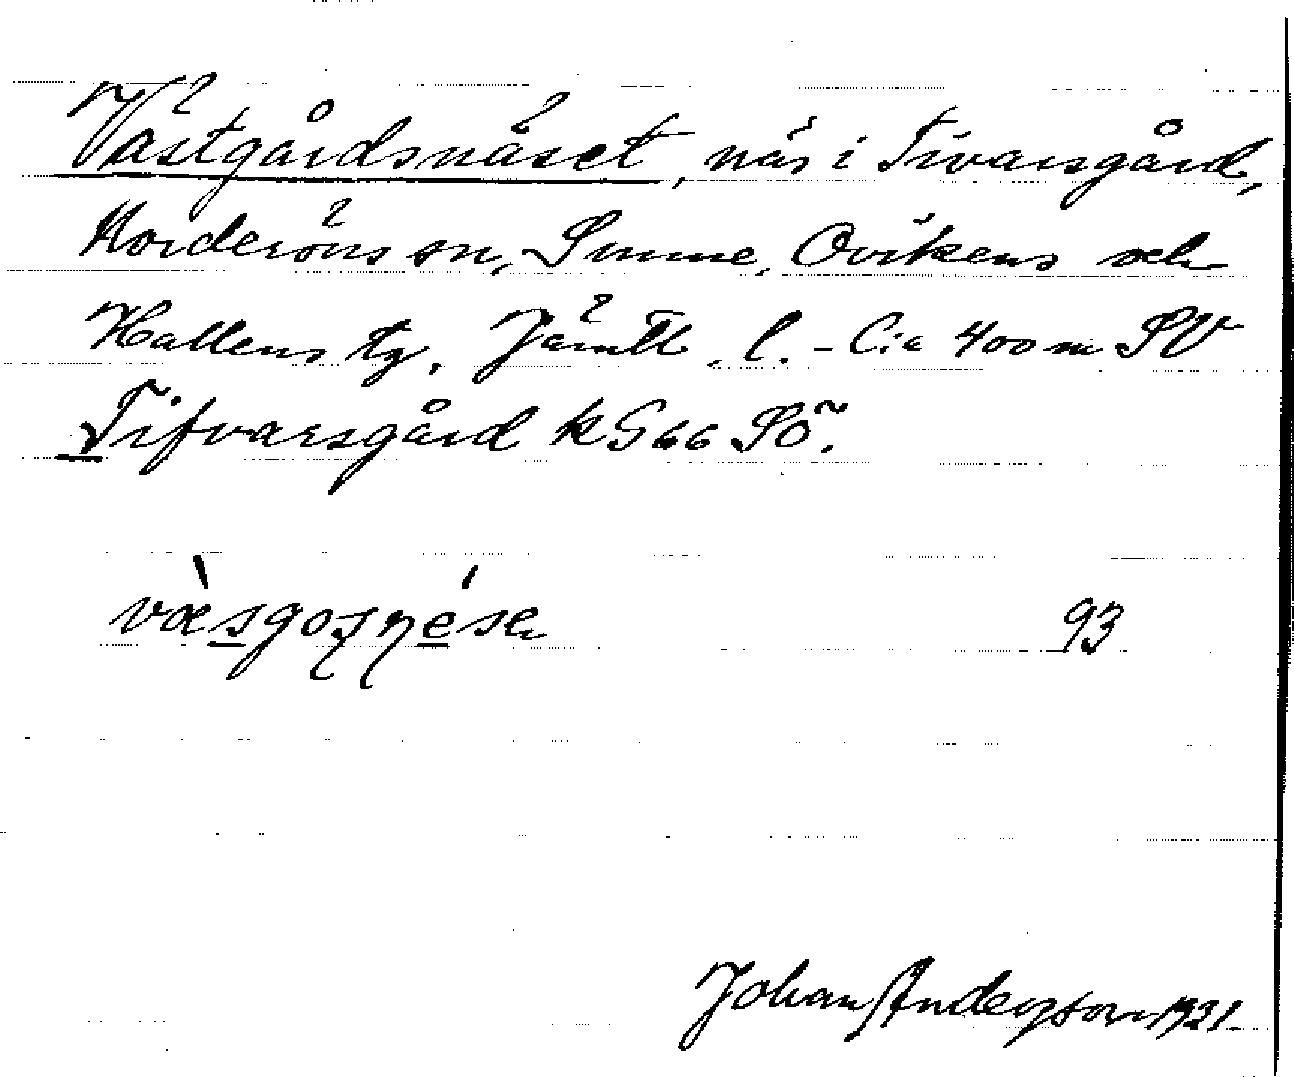 Västgårdsnäset, näs i Tivarsgård,
Norderöns sn, Sunne, Ovikens och
Hallens tg, Jämtl. l. - Cia 400 m SV
Tifvarsgård k G66 SÖ.
93
Johan Anderson 1931.